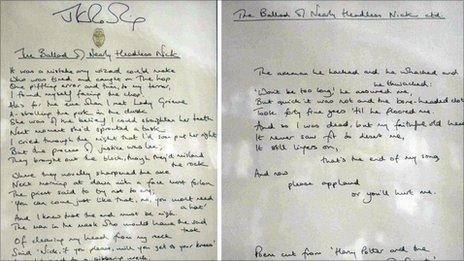 JK Rowling
The Ballad of Nearly Headless Nick
It was a mistake any wizard could make
Who was tired and caught on the hop
One piffling error and then, to my terror,
I found myself facing the chop.
Alas for the eve when I met Lady Grieve
A-strolling the park in the dusk
She was of the belief I could straighten her teeth
Next moment she'd sprouted a tusk.
I cried through the night that I'd soon put her right
But the process of justice was lax;
They brought out the block, though they'd mislaid
the rock
Where they usually sharpened the axe.
Next morning at dawn with a face most forlorn
The priest said to try not to cry,
"You can come just like that, no, you won't need
a hat"
And I knew that the end must be nigh.
The man in the mask who would have the sad
task
Of cleaving my head from my neck
Said "Nick, if you please, will you get to your knees"
The Ballad of Nearly Headless Nick ctd
The axeman he hacked and he whacked and
he thwacked
"Don't be too long" he assured me,
But quick it was not and the bone-headed clot
Took forty five goes 'til he floored me.
And so I was dead, but my faithful old head
It never saw fit to desert me,
It still lingers on,
that's the end of my song
And now
please applaud
or you'll hurt me.
Poem cut from 'Harry Potter and the